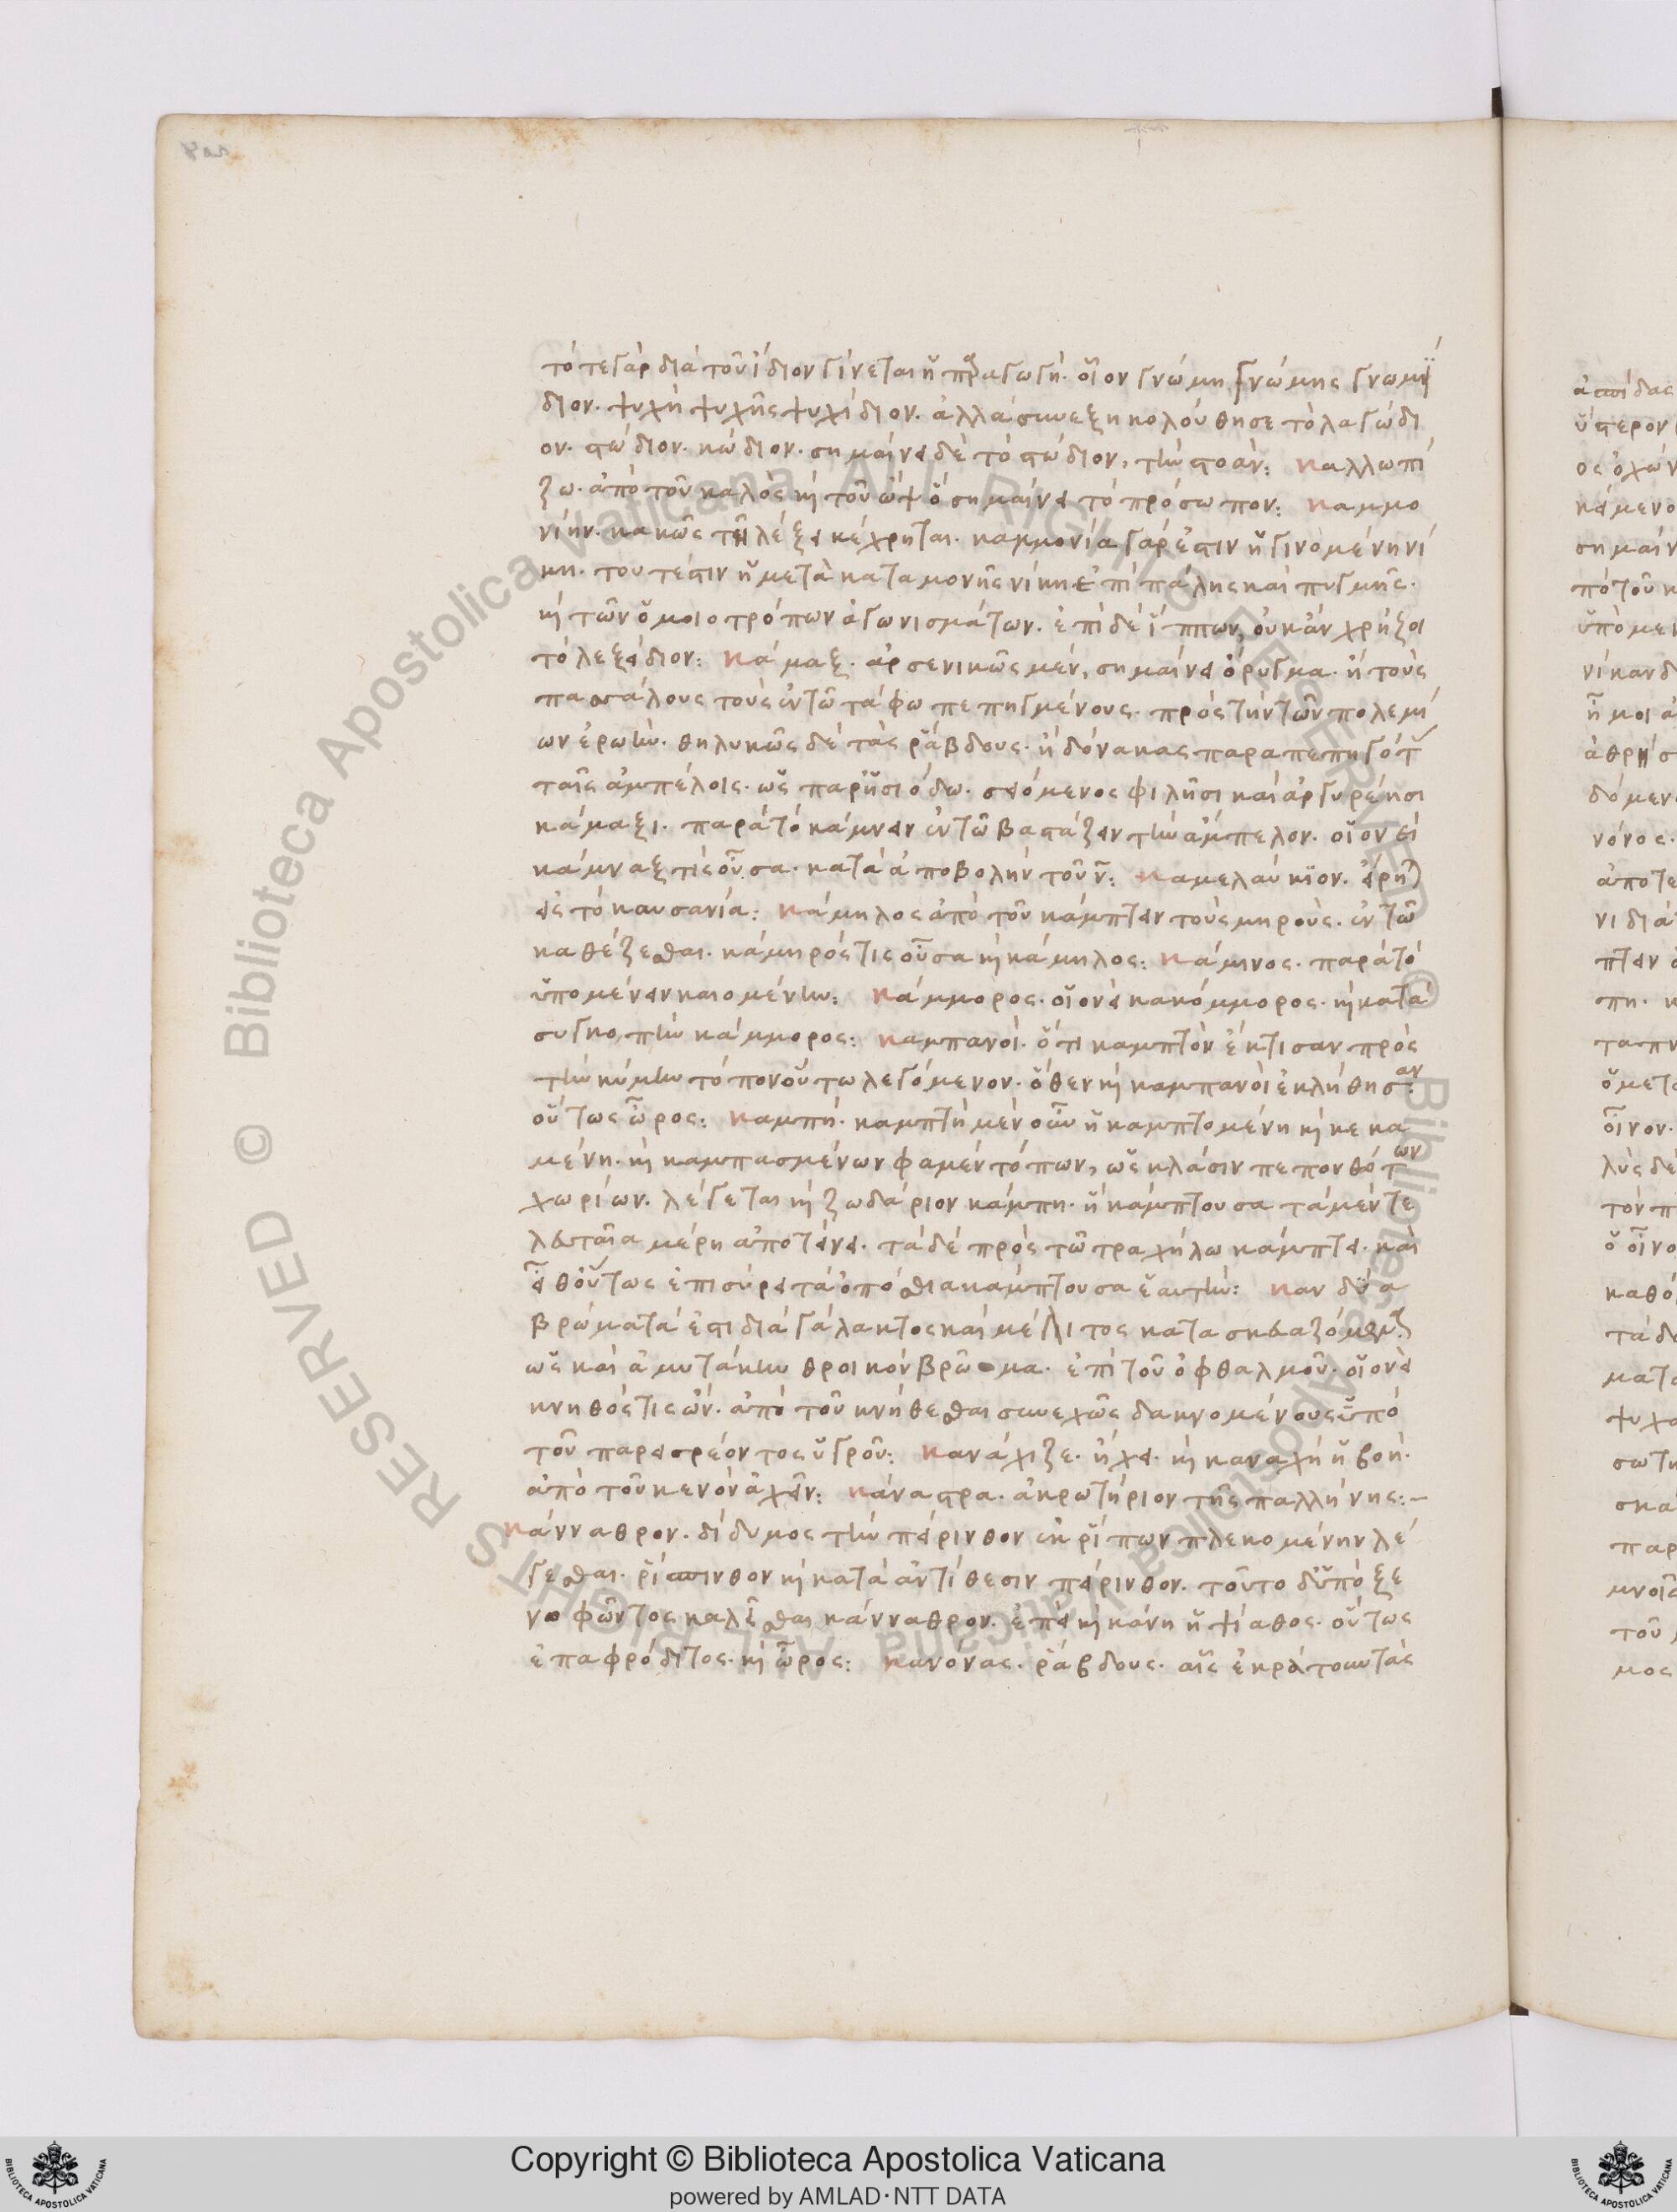 τότε γὰρ διὰ τοῦ ίδιον γίνεται ἡ παραγωγή. οἷον γνώμη γνώμης γνωμί
διον. ψυχὴ ψυχῆς ψυχίδιον. ἀλλὰ συνεξηκολούθησε τὸ λαγώδι
ον. στώδιον. κώδιον. σημαίνει δὲ τὸ στώδιον, τὴν στοάν: καλλωπί
ζω. ἀπὸ τοῦ καλὸς καὶ τοῦ ὢψ ὃ σημαίνει τὸ πρόσωπον: καμμο
νίην. κακῶς τῆ λέξει κέχρηται. καμμονία γάρ ἐστιν ἡ γινομένη νί
κη. τουτέστιν ἡ μετὰ καταμονῆς νίκη ἐπὶ πάλης καὶ πυγμῆς.
καὶ τῶν ὁμοιοτρόπων ἀγωνισμάτων. ἐπὶ δὲ ἵππων, οὐκ ἂν χρήζοι
τὸ λεξείδιον: κάμαξ. ἀρσενικῶς μέν, σημαίνει ὄρυγμα. ἢ τοὺς
πασσάλους τοὺς ἐν τῶ τάφω πεπηγμένους. πρὸς τὴν τῶν πολεμί
ων ἐρωὴν. θηλυκῶς δὲ τὰς ῥάβδους. ἢ δόνακας παραπεπηγότ
ταῖς ἀμπέλοις. ὡς παρ' ἡσιόδω. σειόμενος φιλῆσι καὶ ἀργυρέησι
κάμαξι. παρὰ τὸ κάμνειν ἐν τῶ βαστάζειν τὴν ἄμπελον. οἷον εἰ
κάμναξ τὶς οὖσα. κατὰ ἀποβολὴν τοῦ ν: καμελαύκϊον. εἴρηται
εἰς τὸ καυσανία: κάμηλος ἀπὸ τοῦ κάμπτειν τοὺς μηρούς. ἐν τῶ
καθέζεσθαι. κάμηρός τις οὖσα καὶ κάμηλος: κάμινος. παρὰ τὸ
ὑπομένειν καιομένην: κάμμορος. οἱονεὶ κακόμμορος. καὶ κατὰ
συγκοπὴν κάμμορος: καμπανοί. ὅτι καμπτὸν ἔκτισαν πρὸς
τὴν κύμην τόπον οὕτω λεγόμενον. ὅθεν καὶ καμπανοὶ ἐκλήθησαν.
οὕτως ὦρος: καμπή. καμπτὴ μὲν οὖν ἡ καμπτομένη καὶ κεκα
μένη. καὶ καμπασμένων φαμὲν τόπων, ὡς κλάσιν πεπονθότων
χωρίων. λέγεται καὶ ζωδάριον κάμπη. ἡ κάμπτουσα τὰ μὲν τε
λευταῖα μέρη ἀποτείνει. τὰ δὲ πρὸς τῶ τραχήλω κάμπτει. καὶ
εἶθ' οὕτως ἐπισύρει τὰ ὀπόσθια κάμπτουσα ἑαυτήν: κανδύα
βρώματά ἐστι διὰ γάλακτος καὶ μέλιτος κατασκευαζόμενα
ὡς καὶ ἀμυτάκην θροικὸν βρῶμα. ἐπὶ τοῦ ὀφθαλμοῦ. οἱονεὶ
κνηθός τις ὤν. ἀπὸ τοῦ κνήθεσθαι συνεχῶς δακνομένους ὑπὸ
τοῦ παρεισρέοντος ὑγροῦ: κανάχιζε. ἤχει. καὶ καναχὴ ἡ βοή.
ἀπὸ τοῦ κενὸν ἀχεῖν: κάναστρα. ἀκρωτήριον τῆς παλλήνης:–
κάνναθρον. δίδυμος τὴν πείρινθον ἐκ ῥίπων πλεκομένην λέ
γεσθαι. ῥίπινθον καὶ κατὰ ἀντίθεσιν πείρινθον. τοῦτο δ' ὑπὸ ξε
νοφῶντος καλεῖσθαι κάνναθρον. ἐπεὶ καὶ κάνη ἡ ψίαθος. οὕτως
ἐπαφρόδιτος. καὶ ὦρος: κανόνας. ῥάβδους. αἷς ἐκράτουν τὰς
Copyright © Biblioteca Apostolica Vaticana
powered by AMLAD·NTT DATA